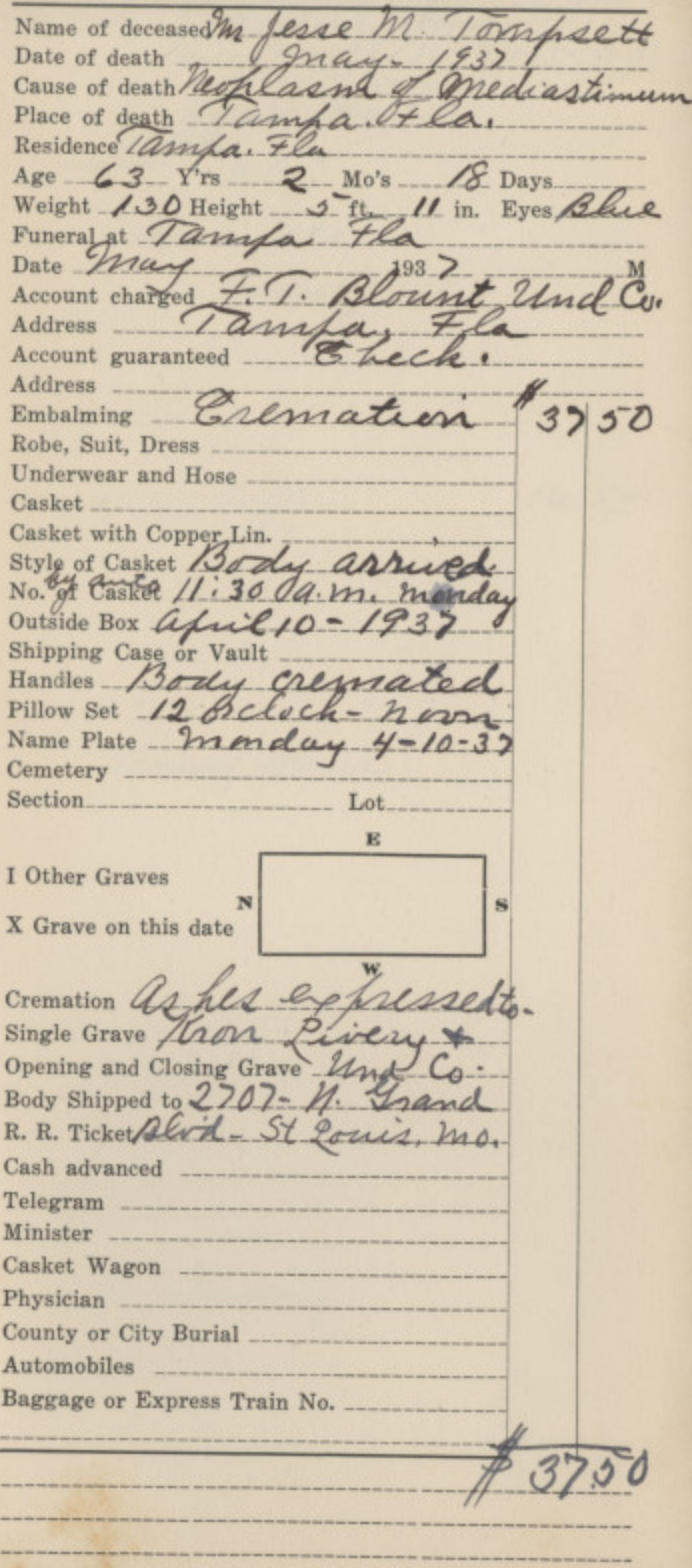 Name of deceased Mr Jesse M. Tompsett
Date of death May - 1937
Cause of death Neoplasm of Mediastinum
Place of death Tampa. Fla.
Residence Tampa. Fla
Age 63 Y'rs 2 Mo's 18 Days
Weight 130 Height 5 ft. 11 in. Eyes Blue
Funeral at Tampa Fla
Date May 1937 M
Account charged F. T. Blount Und Co.
Address Tampa, Fla
Account guaranteed Check.
Address
Embalming Cremation $37 50
Robe, Suit, Dress
Underwear and Hose
Casket
Casket with Copper Lin.
Style of Casket Body arrived
by auto
No. of Casket 11:30 a.m. Monday
Outside Box April 10 - 1937
Shipping Case or Vault
Handles Body cremated
Pillow Set 12 O'clock - Noon
Name Plate Monday 4-10-37
Cemetery
Section Lot
E
I Other Graves
N S
X Grave on this date
W
Cremation Ashes expressed to-
Single Grave Kron Livery +
Opening and Closing Grave Und Co.
Body Shipped to 2707 - N. Grand
R. R. Ticket Blvd - St Louis, Mo.
Cash advanced
Telegram
Minister
Casket Wagon
Physician
County or City Burial
Automobiles
Baggage or Express Train No.
$37.50